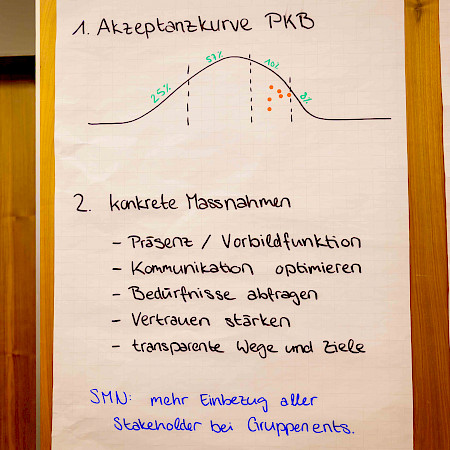 1. Akzeptanzkurve PKB
25% 57% 10% 8%
2. konkrete Massnahmen
- Präsenz / Vorbildfunktion
- Kommunikation optimieren
- Bedürfnisse abfragen
- Vertrauen stärken
- transparente Wege und Ziele
SMN: mehr Einbezug aller
Stakeholder bei Gruppenents.